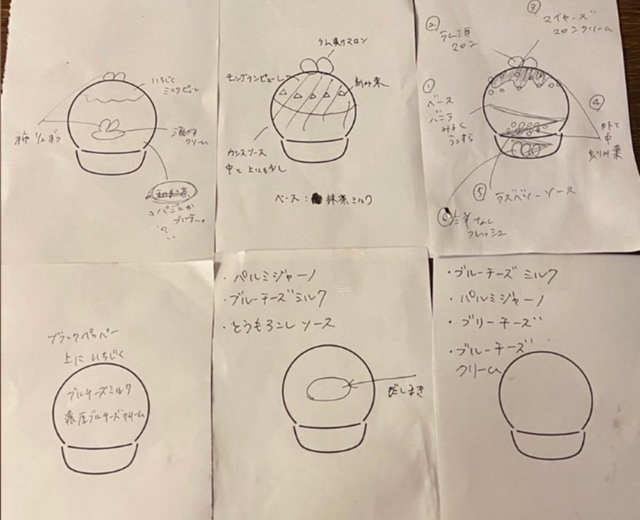 いちじく
ミルクピューレ
クリーム
ラム酒マロン
モンブランピューレ
刻み栗
カシスソース
中と上にも少し
ベース：抹茶ミルク
②
ラム酒
マロン
③
マイヤーズ
マロンクリーム
①
ベース
バニラ
みるく
うっすら
④
外と
中
刻み栗
⑤
ラズベリーソース
洋なし
フレッシュ
ブラックペッパー
上にいちじく
ブルーチーズミルク
濃厚ブルーチーズクリーム
・パルミジャーノ
・ブルーチーズミルク
・とうもろこしソース
だしまき
・ブルーチーズミルク
・パルミジャーノ
・ブリーチーズ
・ブルーチーズ
クリーム